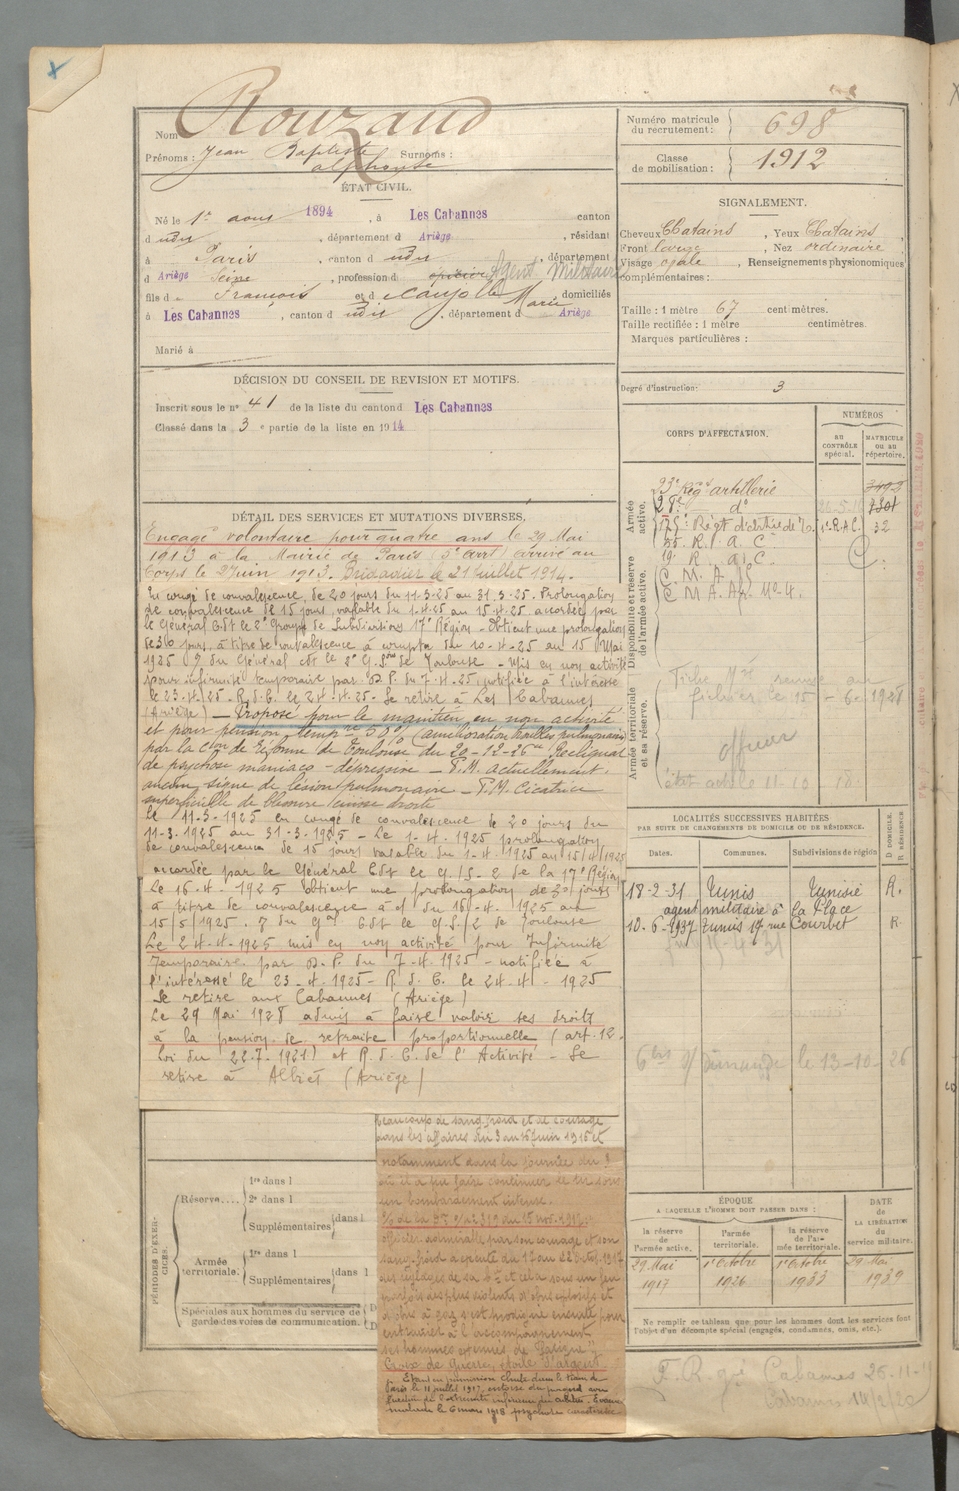 Nom Rouzaud
Prénoms : Jean Baptiste Surnoms :
alphonse
ÉTAT CIVIL.
Né le 1er aout 1894, à Les Cabannes canton
d udit, département d Ariège, résidant
à Paris, canton d udit, département
d Ariège Seine, profession d épicier Agent Militaire
fils de François et d Caujolle Marie domiciliés
à Les Cabannes, canton d udit, département d Ariège
Marié à
DÉCISION DU CONSEIL DE REVISION ET MOTIFS.
Inscrit sous le n° 41 de la liste du canton d Les Cabannes
Classé dans la 3e partie de la liste en 1914
DÉTAIL DES SERVICES ET MUTATIONS DIVERSES.
Engagé volontaire pour quatre ans le 29 Mai
1913 à la Mairie de Paris (5e arrt) arrivé au
Corps le 2 juin 1913. Brigadier le 21 Juillet 1914.
En congé de convalescence, de 20 jours du 11.3.25 au 31.3.25. Prolongation
de convalescence de 15 jours, valable du 1.4.25 au 15.4.25 accordée par
le Général Cdt le 2e Groupe de Subdivisions 17e Région - Obtient une prolongation
de 30 jours, à titre de convalescence à compter du 10.4.25 au 15 Mai
1925 du Général cdt le 2e G. Son de Toulouse - Mis en non activité
pour infirmité temporaire par D.P. du 7.4.25, notifiée à l'intéressé
le 23.4.25. R.d.C. le 24.4.25. Se retire à Les Cabannes
(Ariège) - Proposé pour le maintien en non activité
et pour pension tempre 50% (amélioration troubles pulmonaires)
par la Cion de réforme de Toulouse du 20-12-26 Reliquat
de psychose maniaco-dépressive - P.M. actuellement
aucun signe de lésion pulmonaire - P.M. Cicatrice
superficielle de blessure cuisse droite
le 11-3-1925 en congé de convalescence de 20 jours du
11-3.1925 au 31-3-1925 - Le 1-4.1925 prolongation
de convalescence de 15 jours valable du 1-4.1925 au 15/4/1925
accordée par le Général Cdt le G.S. 2 de la 17e Région
Le 16-4-1925 obtient une prolongation de 30 jours
à titre de convalescence à c/ du 16-4-1925 au
15/5/1925. du Gal Cdt le G.S./2 de Toulouse
Le 24-4-1925 mis en non activité pour Infirmité
Temporaire par D.P. du 7-4.1925 - notifiée à
l'intéressé le 23-4.1925 - R.d.C. le 24-4-1925
Se retire aux Cabannes (Ariège)
Le 29 Mai 1928 admis à faire valoir ses droits
à la pension de retraite proportionnelle (art. 12.
Loi du 22.7.1921) et R.d.C. de l'Activité - Se
retire à Albiès (Ariège)
beaucoup de sang froid et de courage
dans les affaires du 3 au 16 juin 1915 et
notamment dans la journée du
où il a pu faire continuer le tir sous
un bombardement intense.
admirable par son courage et son
sang froid a exécuté du 12 au 22 Oct. 1917
des réglages de sa Bie et cela sous un feu
parfois des plus violents d'obus explosifs et
d'obus à gaz s'est prodigué ensuite pour
entraîner à l'accomplissement
ses hommes exténués de fatigue"
Croix de Guerre, étoile d'argent
Étant en permission chute dans le train de
Paris le 11 juillet 1917, entorse du
PÉRIODES D'EXERCICES.
Réserve.... 1re dans l
2e dans l
Supplémentaires dans l
Armée territoriale: 1re dans l
Supplémentaires dans l
Spéciales aux hommes du service de
garde des voies de communication.
Numéro matricule
du recrutement: 698
Classe
de mobilisation: 1912
SIGNALEMENT.
Cheveux Chatains, Yeux Chatains
Front large, Nez ordinaire
Visage ovale, Renseignements physionomiques
complémentaires :
Taille : 1 mètre 67 centimètres.
Taille rectifiée : 1 mètre centimètres.
Marques particulières :
Degré d'instruction: 3
CORPS D'AFFECTATION.
NUMÉROS
au CONTRÔLE spécial.
MATRICULE ou au répertoire.
Armée active.
23e Régt artillerie
28e do
175e Régt d'artrie de 1er R.A.C. 32
55. R. A. C.
19e R. A. C.
C. M. A.
C. M. A. Ar. No 4.
Disponibilité et réserve de l'armée active.
Armée territoriale et sa réserve.
Fiche Mle remise au
fichier le 15-6-1928
officier
LOCALITÉS SUCCESSIVES HABITÉES
PAR SUITE DE CHANGEMENTS DE DOMICILE OU DE RÉSIDENCE.
Dates. Communes. Subdivisions de région D DOMICILE. R RÉSIDENCE
18-2-31 Tunis Tunisie R.
agent militaire à la Place
10-6-1937 Tunis 17 rue Courbet R
le 13-10-26
ÉPOQUE
A LAQUELLE L'HOMME DOIT PASSER DANS :
la réserve de l'armée active.
l'armée territoriale.
la réserve de l'armée territoriale.
DATE DE LA LIBÉRATION du service militaire.
29 Mai 1917
1er Octobre 1926
1er Octobre 1933
29 Mai 1939
Ne remplir ce tableau que pour les hommes dont les services font
l'objet d'un décompte spécial (engagés, condamnés, omis, etc.).
F. R. Cabannes 25-11-